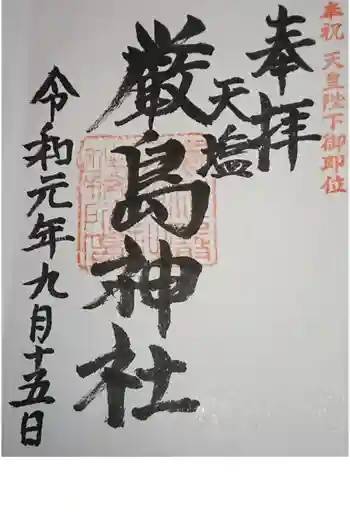 奉祝 天皇陛下御即位
奉拝
天塩
厳島神社
令和元年九月十五日